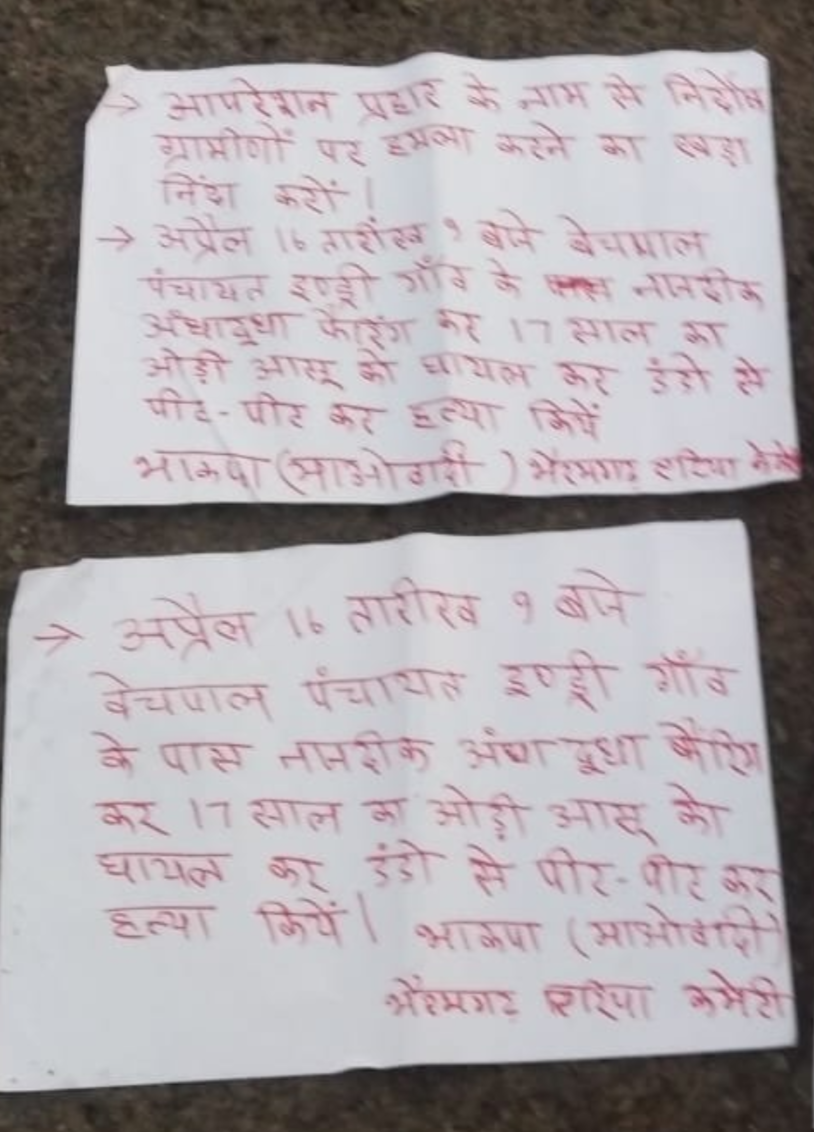 → आपरेशन प्रहार के नाम से निर्दोष
ग्रामीणों पर हमला करने का खड़ा
निंदा करों।
→ अप्रैल 16 तारीख 9 बाजे बेचापाल
पंचायत इण्ड्री गाँव के नाजदीक
अंधाधुधा फैरिंग कर 17 साल का
ओड़ी आसू को घायल कर डंडो से
पीट-पीट कर हत्या कियें
भाकपा (माओवादी) भैरमगढ़ एरिया
→ अप्रैल 16 तारीख 9 बाजे
बेचपाल पंचायत इण्ड्री गाँव
के पास नाजदीक अंधाधुधा फैरिंग
कर 17 साल का ओड़ी आसू को
घायल कर डंडो से पीट-पीट कर
हत्या कियें। भाकपा (माओवादी)
भैरमगढ़ एरिया कमेटी